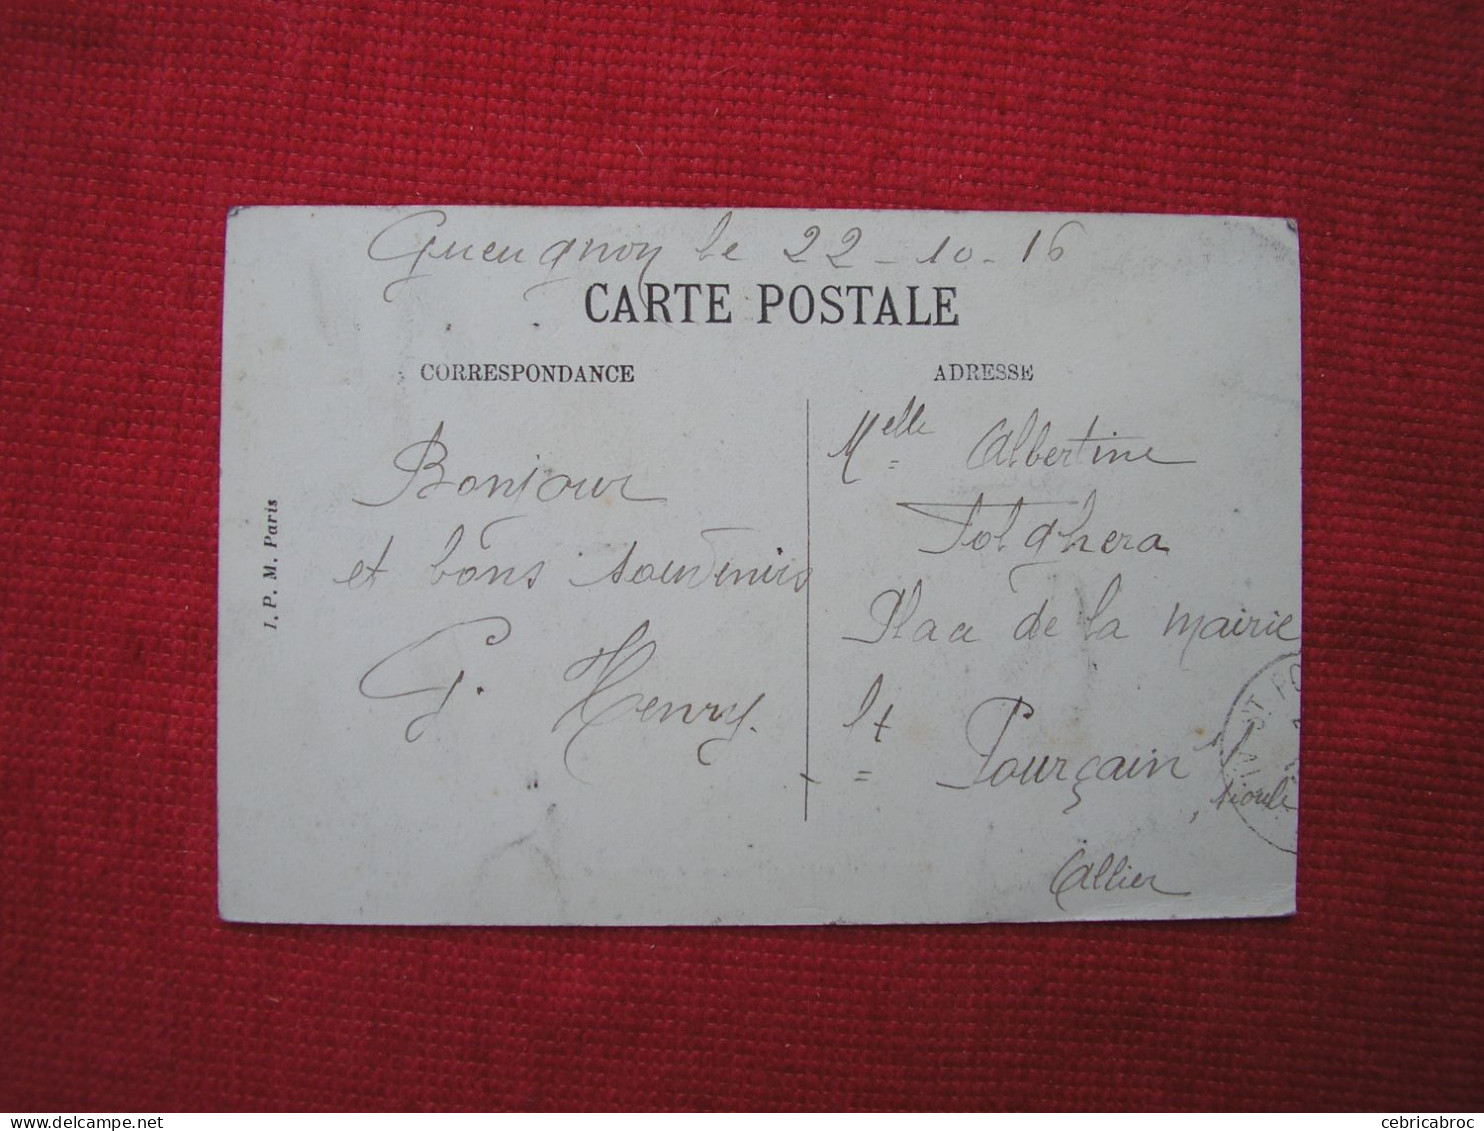 Gueugnon le 22-10-16
CARTE POSTALE
CORRESPONDANCE
ADRESSE
Bonjour
et bons souvenirs
G. Henry.
Melle Albertine
Folghera
Place de la mairie
St Pourçain s/
Sioule
Allier
I. P. M. Paris
ST PO
cebricabroc